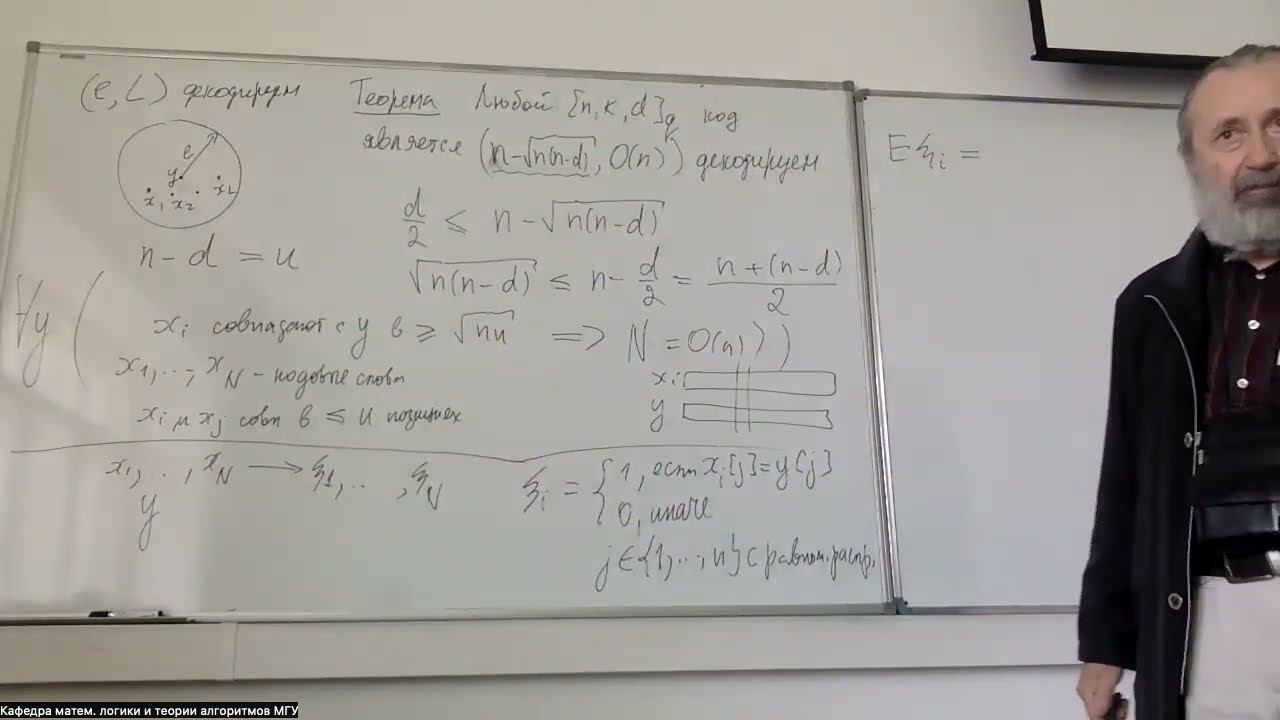 (e, L) декодируем
Теорема Любой [n, k, d]_q код
является (n-√n(n-d), O(n)) декодируем
e
y
x₁ x₂ x_L
d/2 ≤ n - √n(n-d)
n - d = u
√n(n-d) ≤ n - d/2 = (n+(n-d))/2
∀y (
x_i совпадают с y в ≥ √nu ⇒ N = O(n) ) )
x₁, .., x_N - кодовые слова
x_i
y
x_i и x_j совп в ≤ u позициях
x₁, .., x_N → ξ₁, .. , ξ_N
y
ξ_i = { 1, если x_i[j] = y[j]
0, иначе
j ∈ {1, .., n} с равном. распр.
E ξ_i =
Кафедра матем. логики и теории алгоритмов МГУ